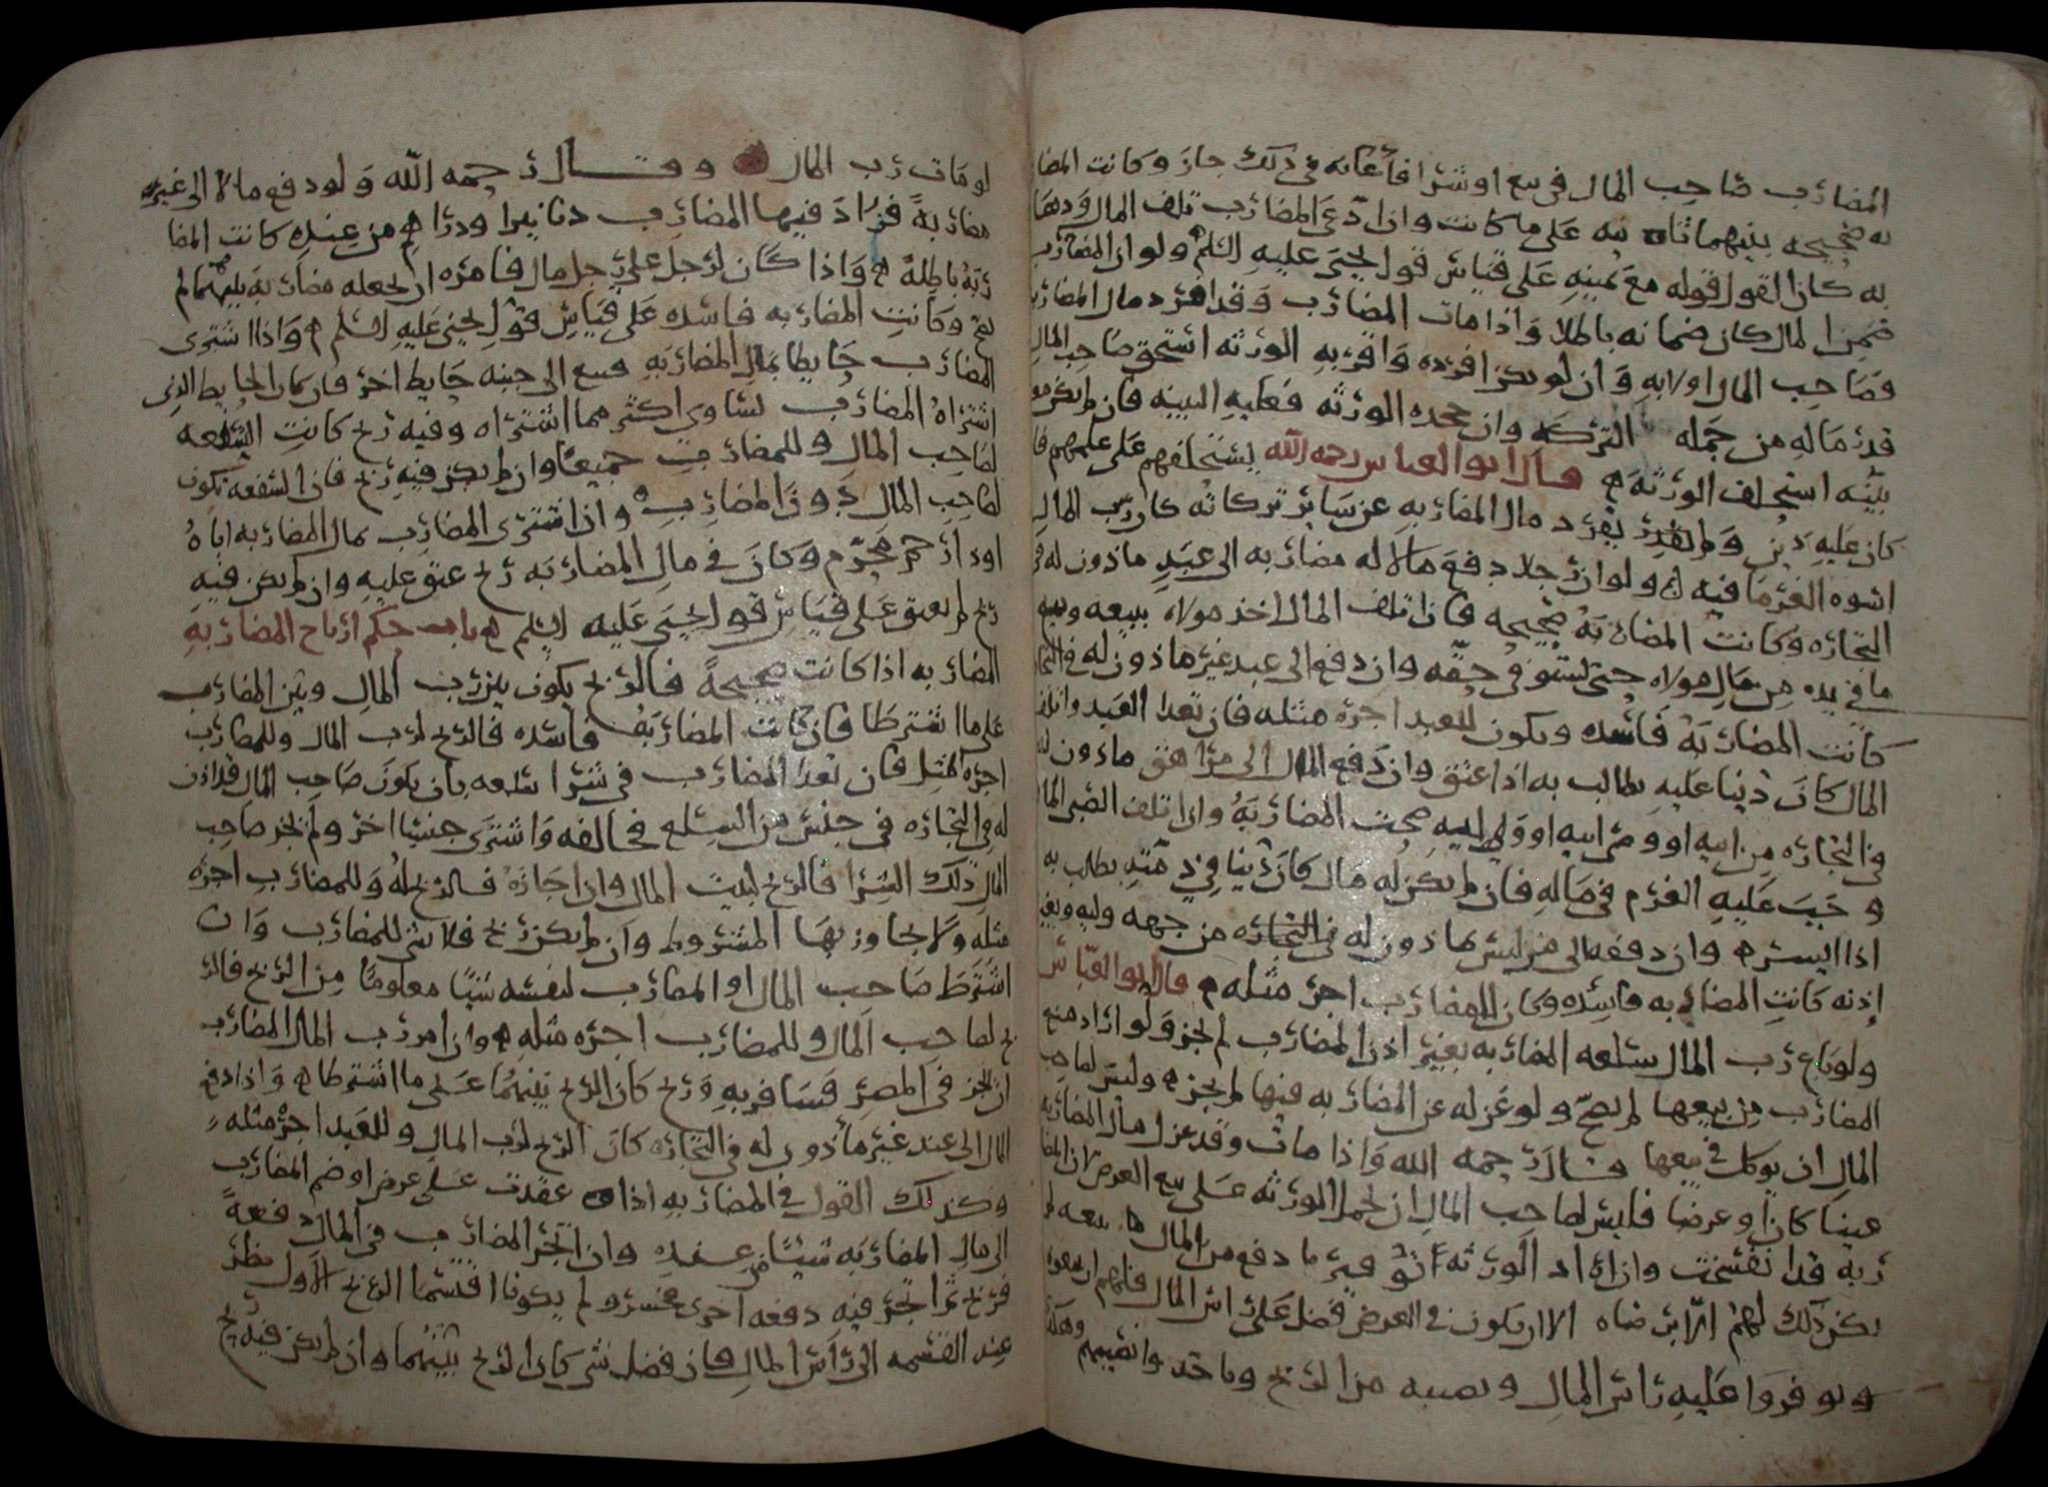 المضارب صاحب المال في بيع او شرا فأعانه في ذلك جاز وكانت المضا
به صحيحه بينهما ثابته على ما كانت واذا ادّعى المضارب تلف المال وذهابه
به كان القول قوله مع يمينه على قياس قول يحيى عليه السلم ولو ان المضارب
ضمن المال كان ضمانه باطلا واذا مات المضارب وقد افرد مال المضاربه
فصاحب المال اولا به وان لم يكن افرده واقر به الورثه استحق صاحب المال
قدر ماله من جمله التركه وان جحده الورثه فعليه البينه فان لم يكن معه
بيّنه استحلف الورثه قال ابو العباس رحمه الله يستحلفهم على علمهم فان
كان عليه دين ولم يفرد مال المضاربه عن سائر تركاته كان رب المال
اسوه الغرما فيه ولو ان رجلا دفع مالا له مضاربه الى عبد ماذون له في
التجاره وكانت المضاربه صحيحه فان تلف المال اخذ مولاه ببيعه وبيع
ما في يده من مال مولاه حتى يستوفى حقّه وان دفع الى عبد غير ماذون له في التجا
كانت المضاربه فاسده ويكون للعبد اجره مثله فان تعدا العبد واتلف
المال كان دينا عليه يطالب به اذا عتق وان دفع المال الى مراهق ماذون له
في التجاره من ابيه او وصى ابيه او ولى ابيه صحت المضاربه واذا تلف الصبي المال
وجب عليه الغرم في ماله فان لم يكن له مال كان دينا في ذمّته يطالب به
اذا ايسر وان دفعه الى من ليس ماذون له في التجاره من جهه وليه وبغير
إذنه كانت المضاربه فاسده وكان للمضارب اجر مثله قال ابو العبّاس
ولو باع رب المال سلعه المضاربه بغير اذن المضارب لم يجز ولو اراد منع
المضارب من بيعها لم يصحّ ولو عزله عن المضاربه فيها لم يجز وليس لصاحب
المال ان يوكل في بيعها قال رحمه الله واذا مات وقد عزل مال المضاربه
عينا كان او عرضا فليس لصاحب المال ان يحمل الورثه على بيع العرض لان المضا
ربه قد انفسخت وان اراد الورثه توفير ما دفع من المال بيعه لم
يكن ذلك لهم الّا برضاه الا ان يكون في العرض فضل على راس المال فلهم ان يبيعوه
ويوفروا عليه راس المال ونصيبه من الربح وياخذوا نصيبهم وهكذا
لو مات رب المال وقال رحمه الله ولو دفع مالا الى غيره
مضاربةً فزاد فيها المضارب دنانيرا ودراهم من عنده كانت المضا
ربه باطلةً واذا كان لرجل على رجل مال فامره ان يجعله مضاربه بينهما لم
يصح وكانت المضاربه فاسده على قياس قول يحيى عليه السلم واذا اشترى
المضارب حايطا بمال المضاربه فبيع الى جنبه حايط اخر فان كان الحايط الذى
اشتراه المضارب يساوي اكثر مما اشتراه وفيه ربح كانت الشفعه
لصاحب المال وللمضارب جميعًا وان لم يكن فيه ربح فان الشفعه تكون
لصاحب المال دون المضارب وان اشترى المضارب بمال المضاربه اباهُ
او ذا رحم محرّم وكان في مال المضاربه ربح عتق عليه وان لم يكن فيه
ربح لم يعتق على قياس قول يحيى عليه السلم باب حكم ارباح المضاربه
المضاربه اذا كانت صحيحةً فالربح يكون بين رب المال وبين المضارب
على ما اشترطا فان كانت المضاربه فاسده فالربح لرب المال وللمضارب
اجره المثل فان تعدا المضارب في شرا سلعه بان يكون صاحب المال قد اذن
له في التجاره في جنس من السلع فخالفه واشترى جنسًا اخر ولم يجز صاحب
المال ذلك الشرا فالربح لبيت المال وان اجازه فالربح له وللمضارب اجره
مثله ولا يجاوز بها المشروط وان لم يكن ربح فلا شي للمضارب وان
اشترط صاحب المال او المضارب لنفسه شيئًا معلومًا من الربح فالر
بح لصاحب المال وللمضارب اجره مثله وان امر رب المال المضارب
ان يتجر في المصر فسافر به وربح كان الربح بينهما على ما اشترطا واذا دفع
المال الى عبد غير ماذون له في التجاره كان الربح لرب المال وللعبد اجر مثله
وكذلك القول في المضاربه اذا عقدت على عرض او ضم المضارب
الى مال المضاربه شيئًا من عنده وان اتجر المضارب في المال دفعةً
فربح ثم اتجر فيه دفعه اخرى فخسر ولم يكونا اقتسما الربح الاول نظر
عند القسمه الى راس المال فان فضل شي كان الربح بينهما وان لم يكن فيه ربح